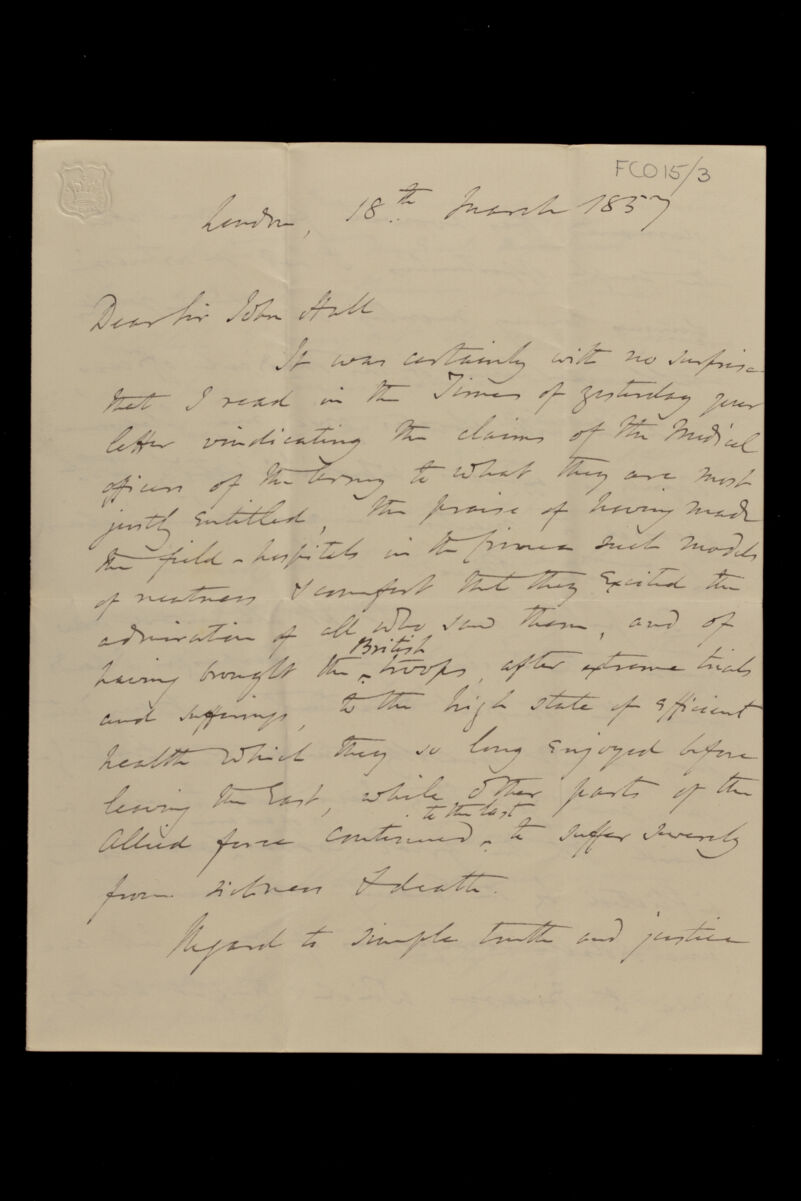 FCO15/3
London, 18th March 1857
Dear Sir John Hall
It was certainly with no surprise
that I read in the Times of yesterday your
letter vindicating the claims of the Medical
officers of the Army to what they are most
justly entitled, the praise of having made
the field-hospitals in the Crimea such models
of neatness & comfort that they excited the
admiration of all who saw them, and of
British
having brought the ^ troops, after extreme trials
and sufferings, to the high state of efficient
health which they so long enjoyed before
leaving the East, while other parts of the
to the last
Allied force continued ^ to suffer severely
from sickness & death.
Regard to simple truth and justice